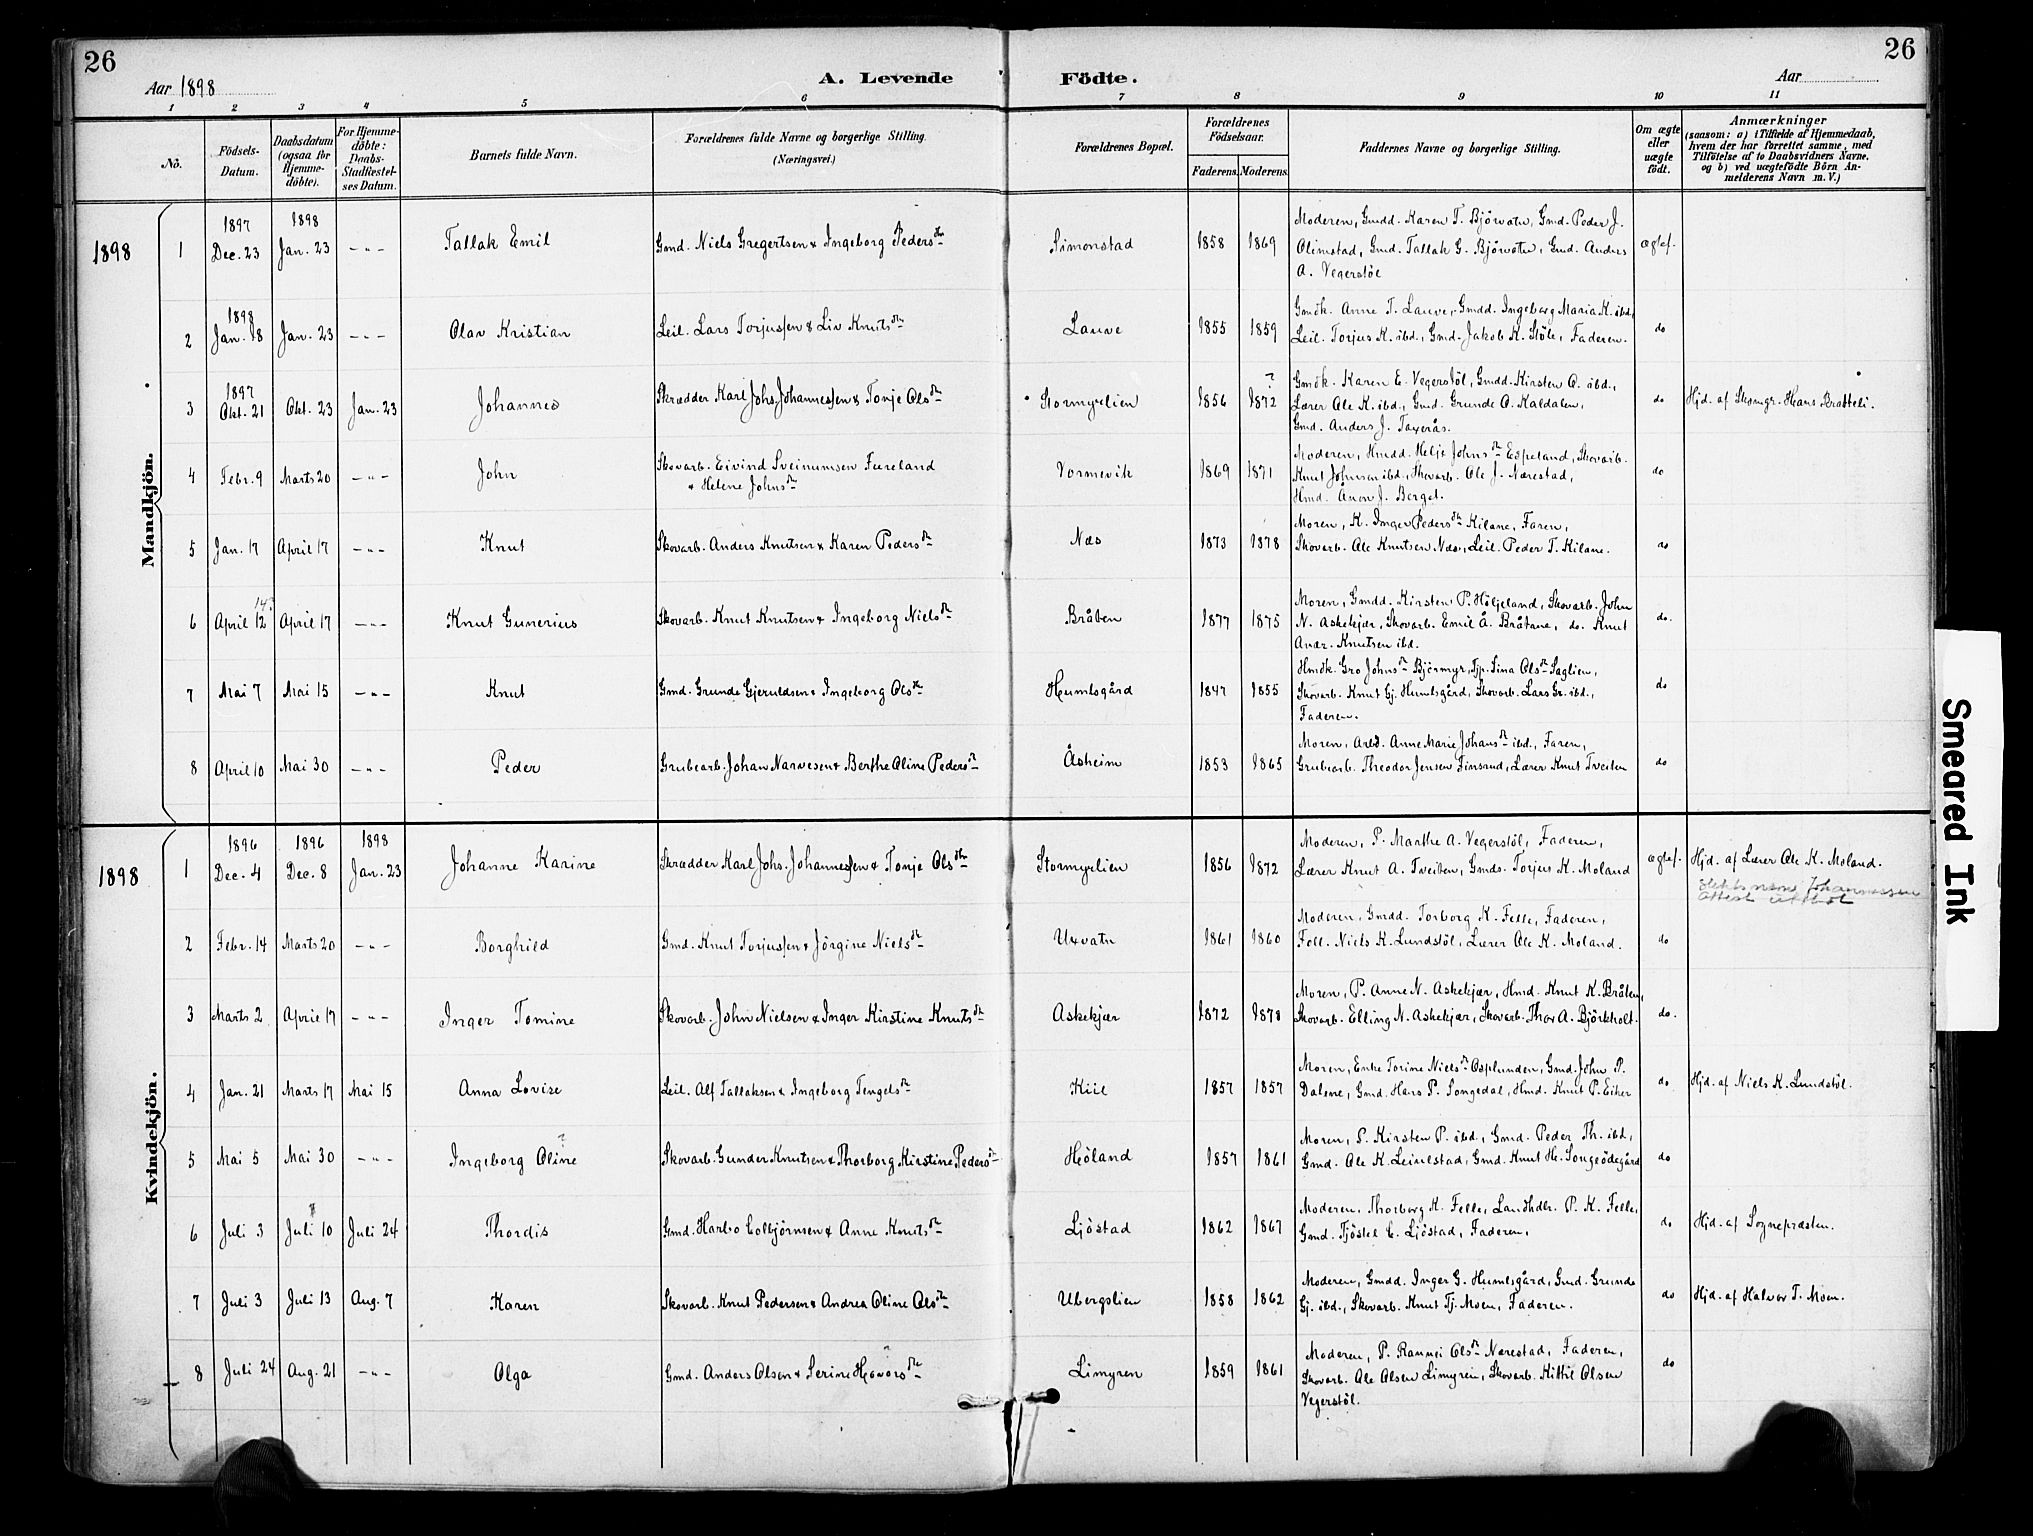 26
Aar 1898
A. Levende Födte.
Aar
26
1 2 3 4 5 6 7 8 9 10 11
No.
Födsels-Datum.
Daabsdatum (ogsaa for Hjemme-döbte).
For Hjemme-döbte: Daabs-Stadfæstel-ses Datum.
Barnets fulde Navn.
Forældrenes fulde Navne og borgerlige Stilling. (Næringsvei.)
Forældrenes Bopæl.
Forældrenes Födselsaar.
Faderens. Moderens.
Faddernes Navne og borgerlige Stilling.
Om ægte eller uægte födt.
Anmærkninger
(saasom: a) i Tilfælde af Hjemmedaab, hvem der har forrettet samme, med Tilföielse af to Daabsvidners Navne, og b) ved uægtefödte Börn An-melderens Navn m. V.)
Mandkjön.
1898 1 1897 Dec. 23 1898 Jan. 23 -"- Tallak Emil Gmd. Niels Gregertsen & Ingeborg Pedersdtr Simonstad 1858 1869 Moderen, Gmdd. Karen T. Björvatn, Gmd. Peder J.
Olimstad, Gmd. Tallak G. Björvatn, Gmd. Anders
A. Vegerstöl ægtef.
2 1898 Jan. 18 Jan. 23 -"- Olav Kristian Leil. Lars Torjussen & Liv Knutsdtr Lauve 1855 1859 Gmdk. Anne T. Lauve, Gmdd. Ingeborg Maria K. ibd.,
Leil. Torjus K. ibd., Gmd. Jakob K. Stöle, Faderen. do
3 1897 Okt. 21 Okt. 23 Jan. 23 Johannes Skrædder Karl Johs. Johannessen & Tonje Olsdtr Stormyrlien 1856 1872 ? Gmdk. Karen E. Vegerstöl, Gmdd. Kirsten O. ibd.,
Lærer Ole K. ibd., Gmd. Grunde O. Kaldalen,
Gmd. Anders J. Taxerås. do Hjd. af Skomgr. Hans Bratteli.
4 Febr. 9 Marts 20 -"- John Skovarb. Eivind Sveinumsen Fureland
& Helene Johnsdtr Vormevik 1869 1871 Moderen, Hmdd. Helje Johnsdtr Espeland, Skovarb.
Knut Johnsen ibd., Skovarb. Ole J. Nærestad,
Hmd. Ånon J. Berget. do
5 Jan. 17 April 17 -"- Knut Skovarb. Anders Knutsen & Karen Pedersdtr Næs 1873 1878 Moren, K. Inger Pedersdtr Kilane, Faren,
Skovarb. Ole Knutsen Næs, Leil. Peder T. Kilane. do
6 April 12 14? April 17 -"- Knut Gunerius Skovarb. Knut Knutsen & Ingeborg Nielsdtr Bråten 1877 1875 Moren, Gmdd. Kirsten P. Höljeland, Skovarb. John
N. Askekjær, Skovarb. Emil Å. Bråtane, do. Knut
Andr. Knutsen ibd. do.
7 Mai 7 Mai 15 -"- Knut Gmd. Grunde Gjeruldsen & Ingeborg Olsdtr Humlsgård 1847 1855 Hmdk. Gro Johnsdtr Björmyr, Tjp. Sina Olsdtr Saglien,
Skovarb. Knut Gj. Humlsgård, Skovarb. Lars Gr. ibd.,
Faderen. do
8 April 10 Mai 30 -"- Peder Grubearb. Johan Narvesen & Berthe Oline Pedersdtr Åsheim 1853 1865 Moren, Arb. Anne Marie Johansdtr ibd., Faren,
Grubearb. Theodor Jensen Finsrud, Lærer Knut Tveiten do
Kvindekjön.
1898 1 1896 Dec. 4 1896 Dec. 8 1898 Jan. 23 Johanne Karine Skrædder Karl Johs. Johannessen & Tonje Olsdtr Stormyrlien 1856 1872 Moderen, P. Marthe A. Vegerstöl, Faderen,
Lærer Knut A. Tveiten, Gmds. Torjus K. Moland ægtef. Hjd. af Lærer Ole K. Moland.
Slektsnavn Johannessen
Attest utstedt
2 Febr. 14 Marts 20 -"- Borghild Gmd. Knut Torjussen & Jörgine Nielsdtr Uxvatn 1861 1860 Moderen, Gmdd. Torborg K. Felle, Faderen,
Foll. Niels K. Lundstöl, Lærer Ole K. Moland. do
3 Marts 2 April 17 -"- Inger Tomine Skovarb. John Nielsen & Inger Kirstine Knutsdtr Askekjær 1872 1878 Moren, P. Anne N. Askekjær, Hmd. Knut K. Bråten,
Skovarb. Elling N. Askekjær, Skovarb. Thor A. Björkholt. do.
4 Jan. 21 Marts 17 Mai 15 Anna Lovise Leil. Alf Tallaksen & Ingeborg Tengelsdtr Kiil 1857 1857 Moren, Enke Torine Nielsdtr Osplunden, Gmd. John P.
Dalene, Gmd. Hans P. Songedal, Hmd. Knut P. Eiker do Hjd. af Niels K. Lundstöl.
5 Mai 5 Mai 30 -"- Ingeborg Oline ? Skovarb. Gunder Knutsen & Thorborg Kirstine Pedersdtr Höland 1857 1861 Moren, P. Kirsten P. ibd., Gmd. Peder Th. ibd.,
Gmd. Ole K. Leinlstad, Gmd. Knut H. Songeödegård do
6 Juli 3 Juli 10 Juli 24 Thordis Gmd. Harbo Colbjörnsen & Anne Knutsdtr Ljöstad 1862 1867 Moderen, Thorborg K. Felle, Landhdlr. P. K. Felle,
Gmd. Tjöstel C. Ljöstad, Faderen, do Hjd. af Sognepræsten.
7 Juli 3 Juli 13 Aug. 7 Karen Skovarb. Knut Pedersen & Andrea Oline Olsdtr Ubergslien 1858 1862 Moderen, Gmdd. Inger G. Humlsgård, Gmd. Grunde
Gj. ibd., Skovarb. Knut Tj. Moen, Faderen. do Hjd. af Halvor T. Moen.
8 Juli 24 Aug. 21 -"- Olga Gmd. Anders Olsen & Serine Hovorsdtr ? Limyren 1859 1861 Moderen, P. Rannei Olsdtr Nærestad, Faderen,
Skovarb. Ole Olsen Limyren, Skovarb. Kittil Olsen
Vegerstöl. do
Smeared Ink